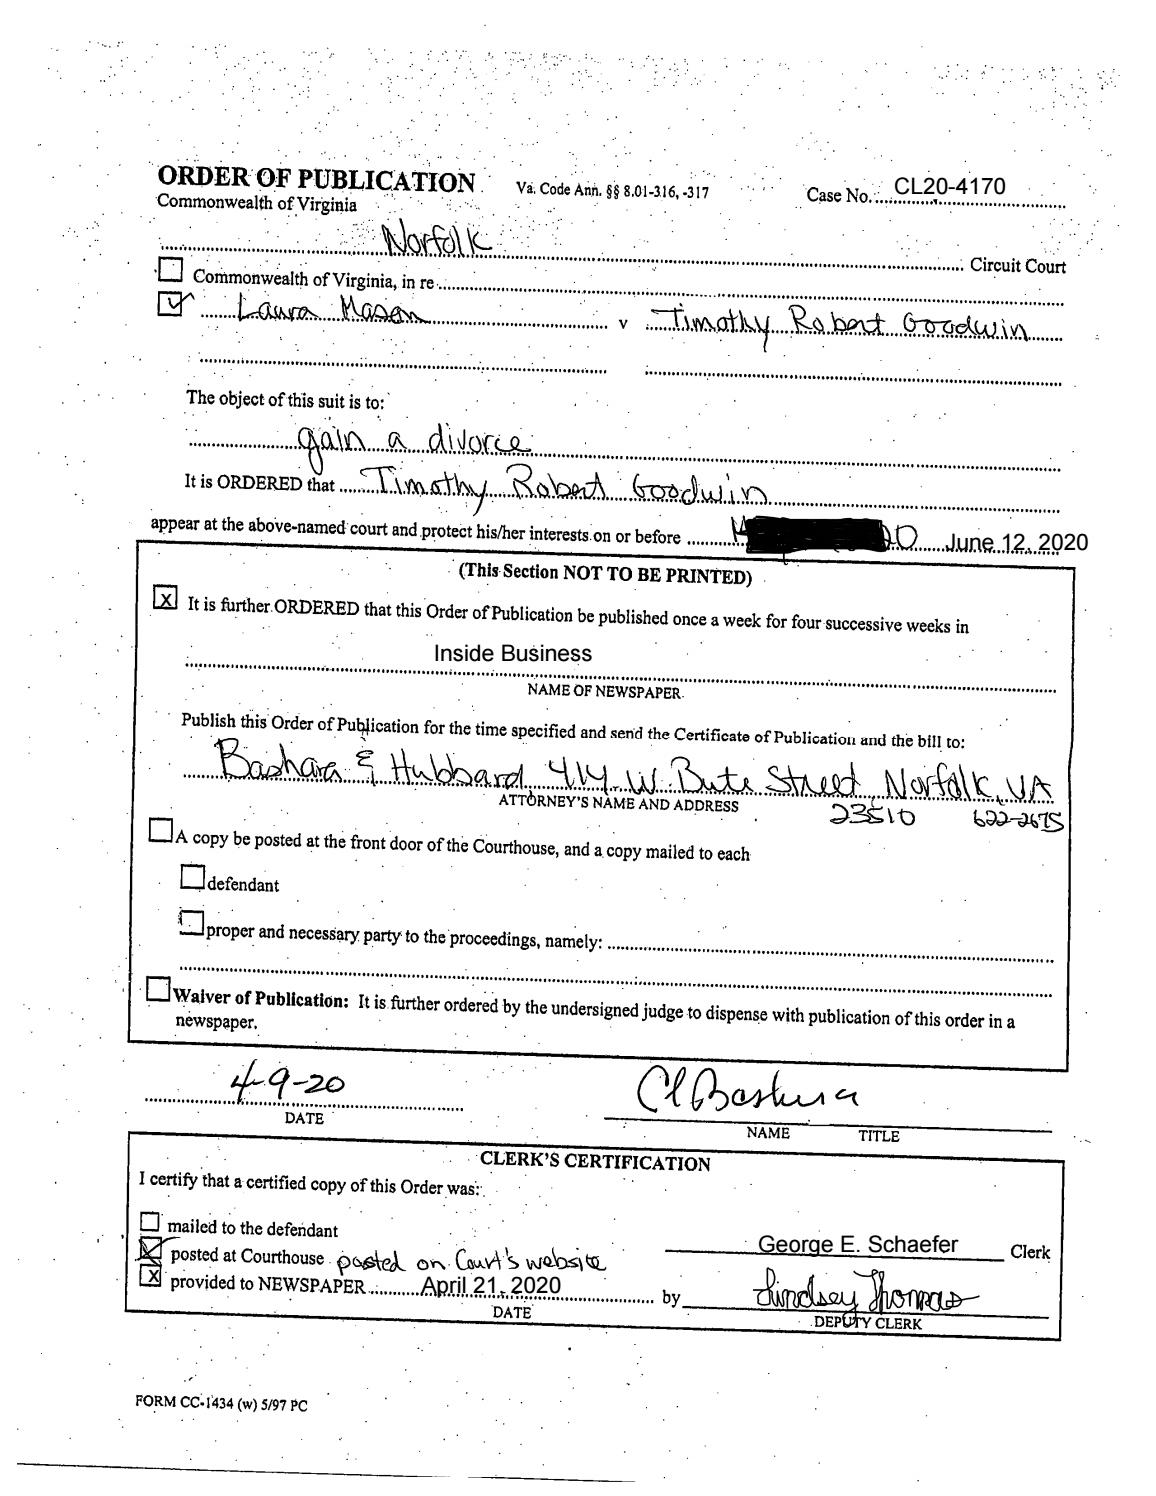 ORDER OF PUBLICATION Va. Code Ann. §§ 8.01-316, -317 Case No. CL20-4170
Commonwealth of Virginia
Norfolk Circuit Court
Commonwealth of Virginia, in re
Laura Mason v Timothy Robert Goodwin
The object of this suit is to:
gain a divorce
It is ORDERED that Timothy Robert Goodwin
appear at the above-named court and protect his/her interests on or before June 12, 2020
(This Section NOT TO BE PRINTED)
X It is further ORDERED that this Order of Publication be published once a week for four successive weeks in
Inside Business
NAME OF NEWSPAPER
Publish this Order of Publication for the time specified and send the Certificate of Publication and the bill to:
Bashara & Hubbard 414 W. Bute Street Norfolk, VA
ATTORNEY'S NAME AND ADDRESS 23510 622-2675
A copy be posted at the front door of the Courthouse, and a copy mailed to each
defendant
proper and necessary party to the proceedings, namely:
Waiver of Publication: It is further ordered by the undersigned judge to dispense with publication of this order in a
newspaper.
4-9-20 Bashara
DATE NAME TITLE
CLERK'S CERTIFICATION
I certify that a certified copy of this Order was:
mailed to the defendant
posted at Courthouse posted on Court's website George E. Schaefer Clerk
X provided to NEWSPAPER April 21, 2020 by Lindsey Thomas
DATE DEPUTY CLERK
FORM CC-1434 (w) 5/97 PC